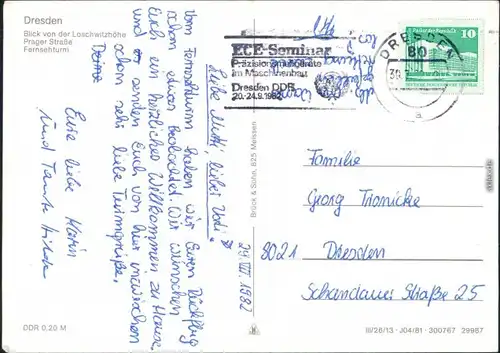 Dresden
Blick von der Loschwitzhöhe
Prager Straße
Fernsehturm
ECE-Seminar
Präzisionsmeßgeräte
im Maschinenbau
Dresden DDR
20.-24.9.1982
DRESDEN
80
a
Palast der Republik
10
DDR
29.VII.1982
Liebe Mutti, lieber Vati!
Vom Fernsehturm haben wir Euren Rückflug
schon etwas beobachtet. Wir wünschen
Euch ein herzliches Willkommen zu Hause
und senden Euch von hier inzwischen
schon sehr liebe Turmgrüße.
Eure liebe Karin
und Tante
Familie
Georg Tronicke
8021 Dresden
Schandauer Straße 25
Brück & Sohn, 825 Meissen
DDR 0,20 M
III/26/13 · J04/81 · 300767 29987